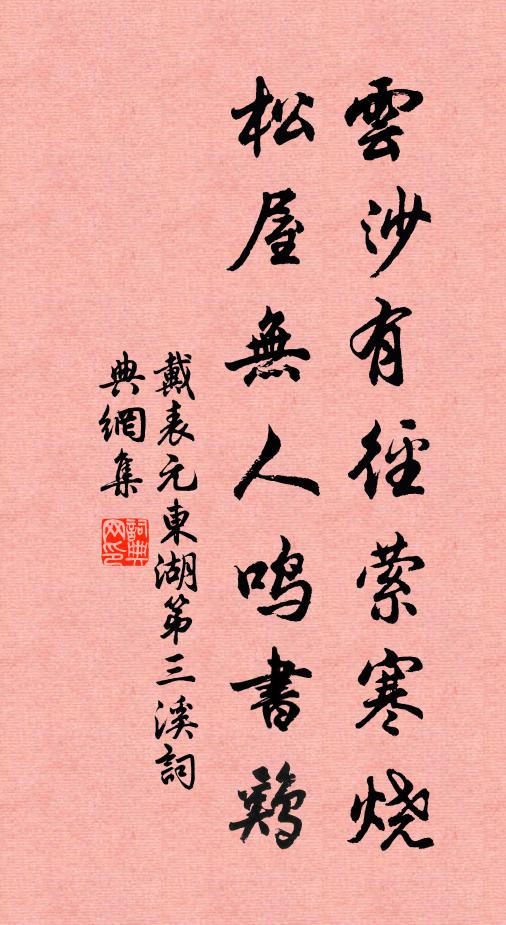 雲沙有徑縈寒燒
松屋無人鳴書鷄
戴表元東湖第三溪詞
典網集
詞典網印